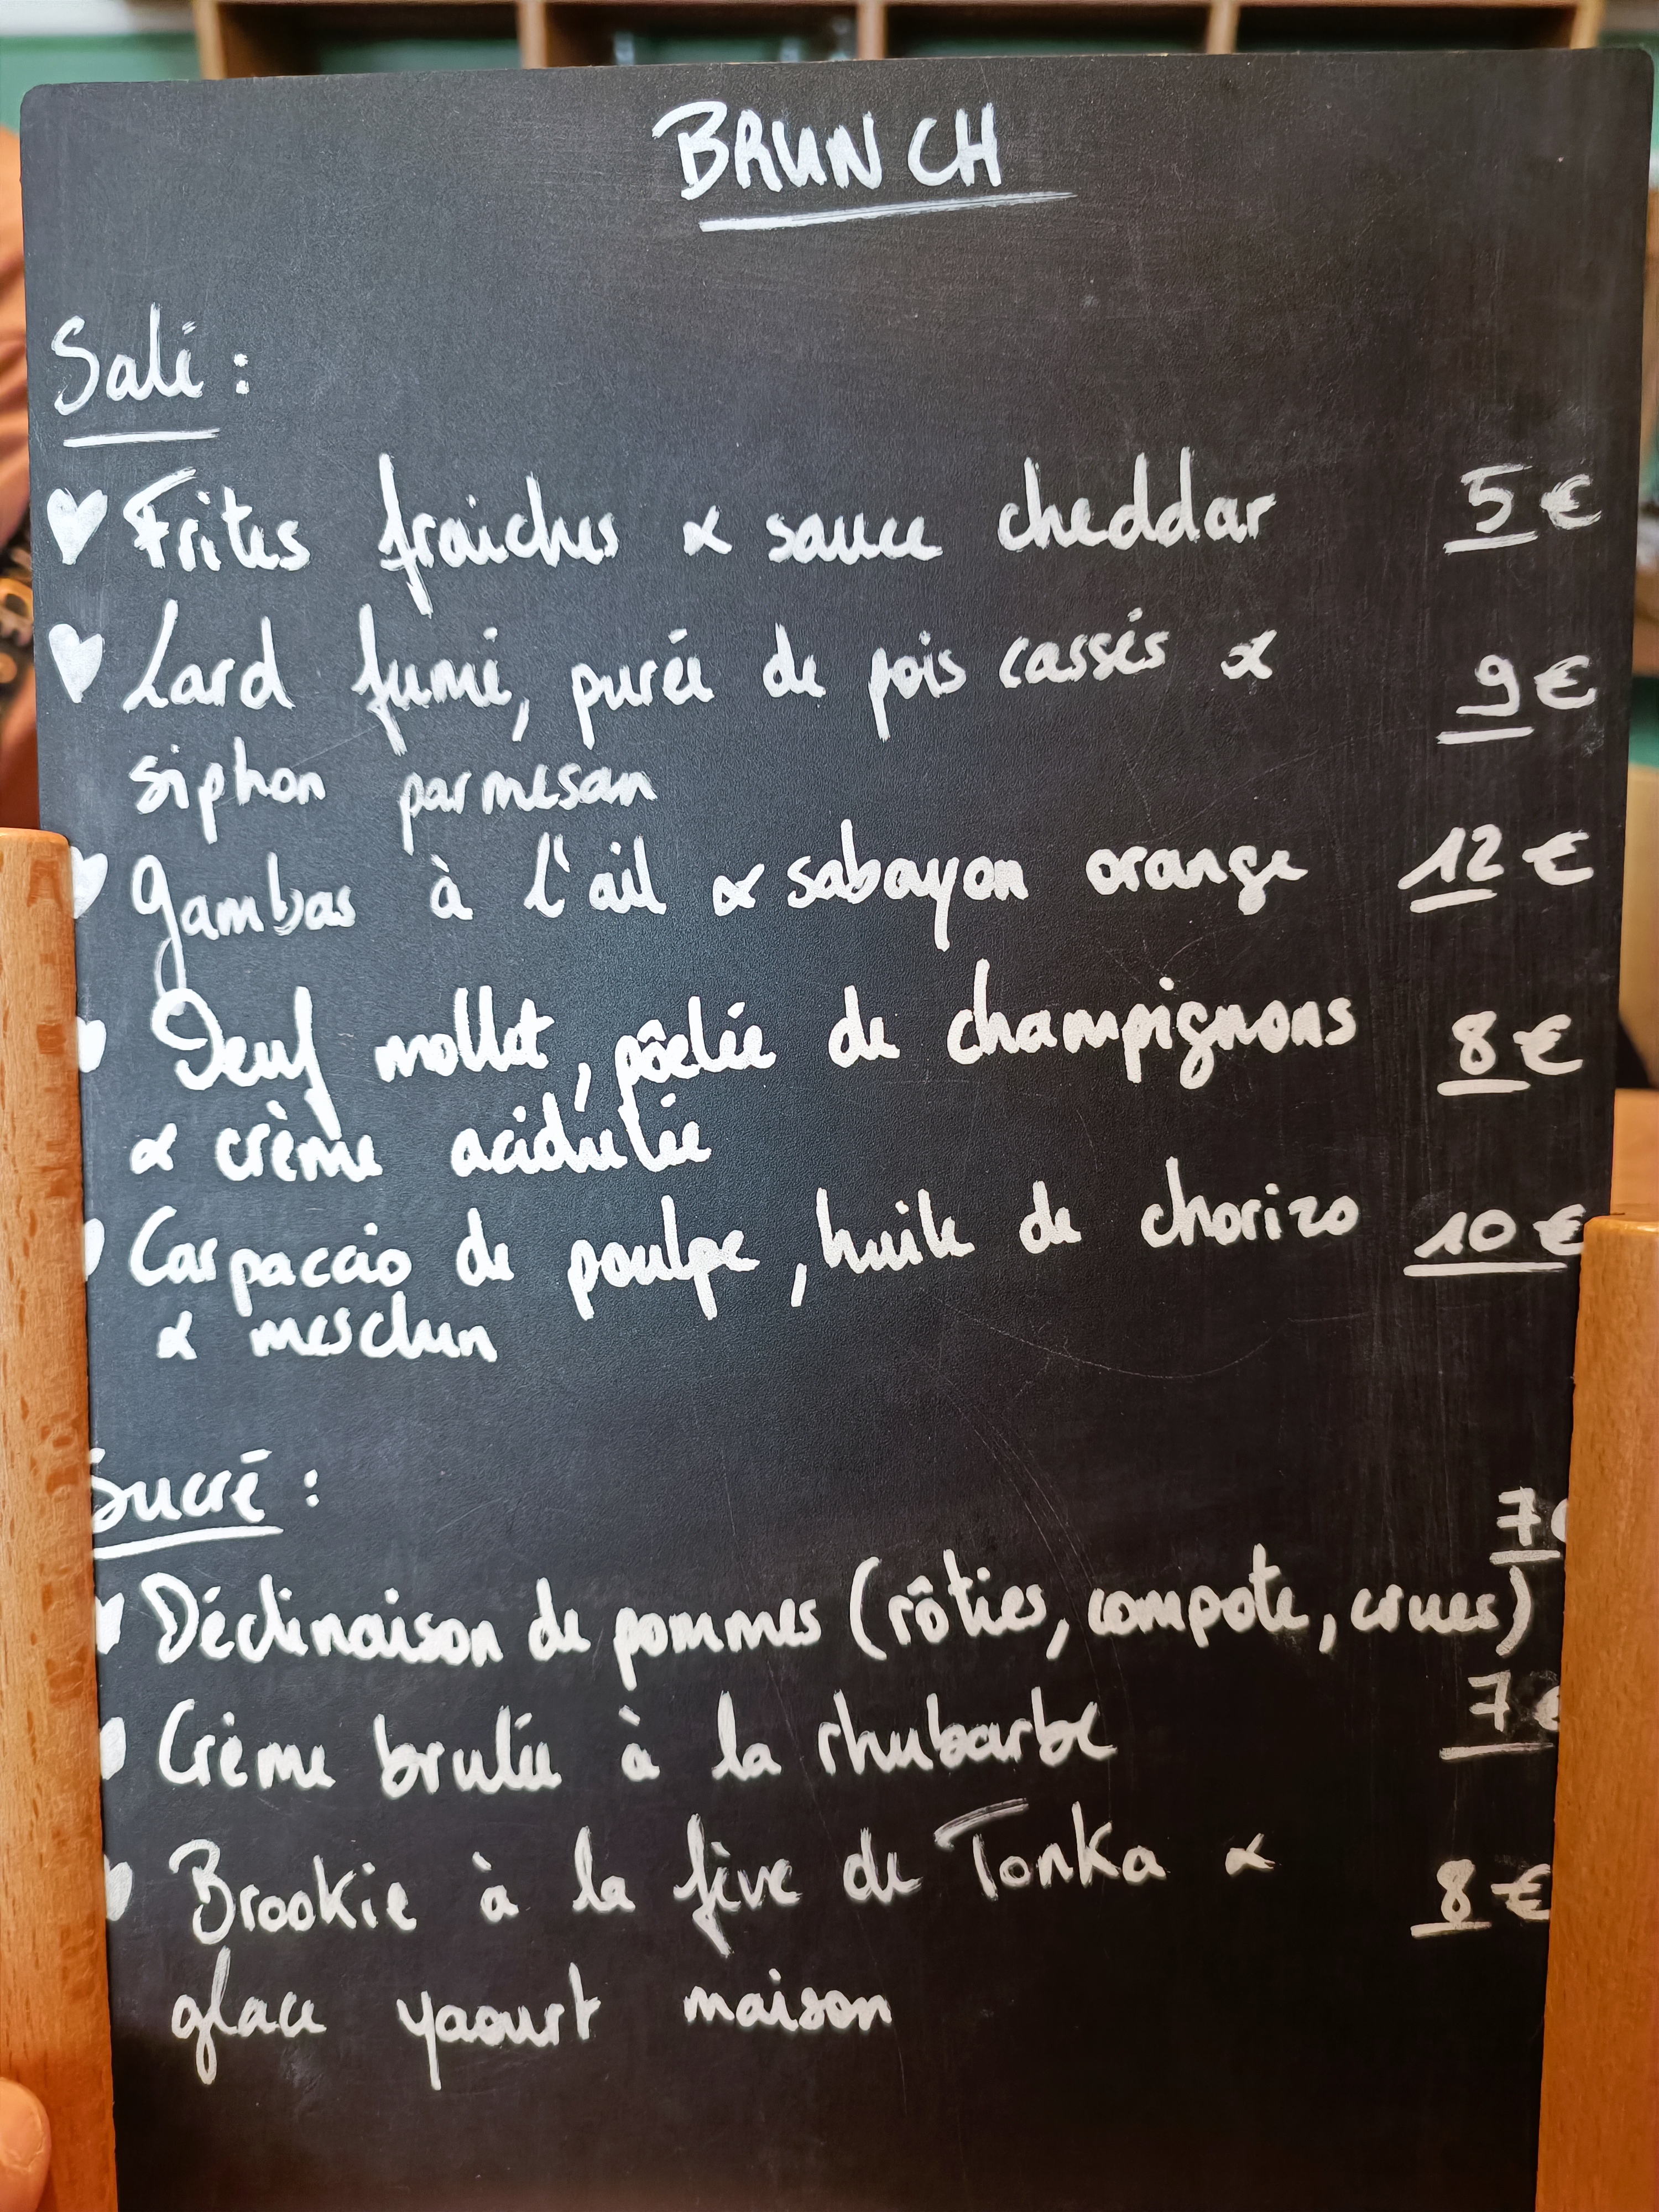 BRUNCH
Salé :
Frites fraiches & sauce cheddar 5€
Lard fumé, purée de pois cassés & 9€
siphon parmesan
Gambas à l'ail & sabayon orange 12€
Oeuf mollet, pôelée de champignons 8€
& crème acidulée
Carpaccio de poulpe, huile de chorizo 10€
& mesclun
Sucré :
7€
Déclinaison de pommes (rôties, compote, crues)
Crème brulée à la rhubarbe 7€
Brookie à la fève de Tonka & 8€
glace yaourt maison